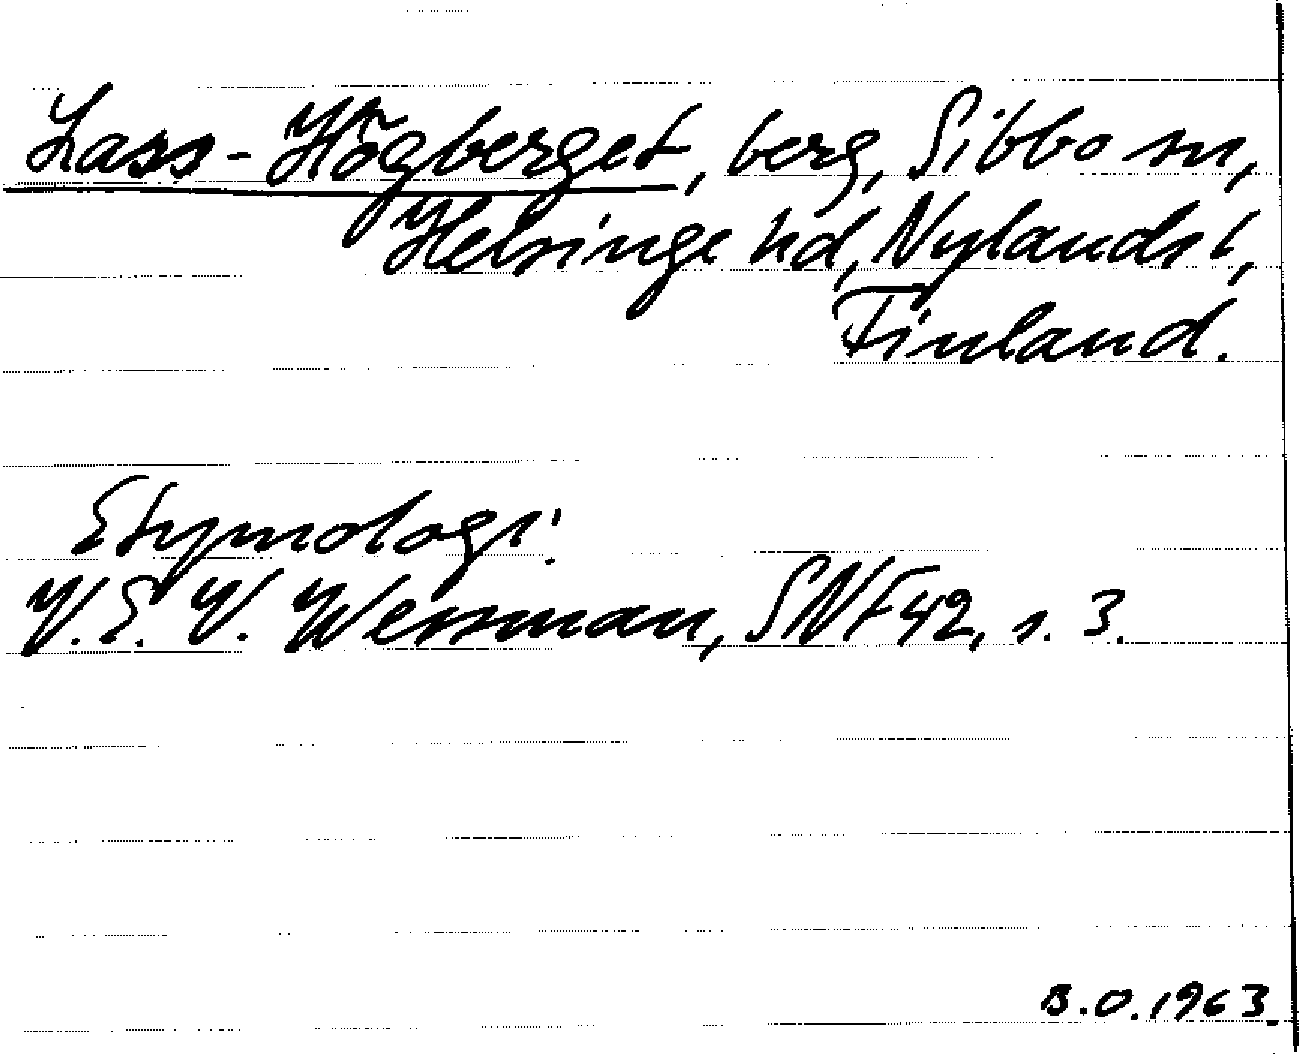 Lass-Högberget, berg, Sibbo sn,
Helsinge hd, Nylands l,
Finland.
Etymologi:
V.E.V. Wessman, SNF 42, s. 3.
B.O. 1963.